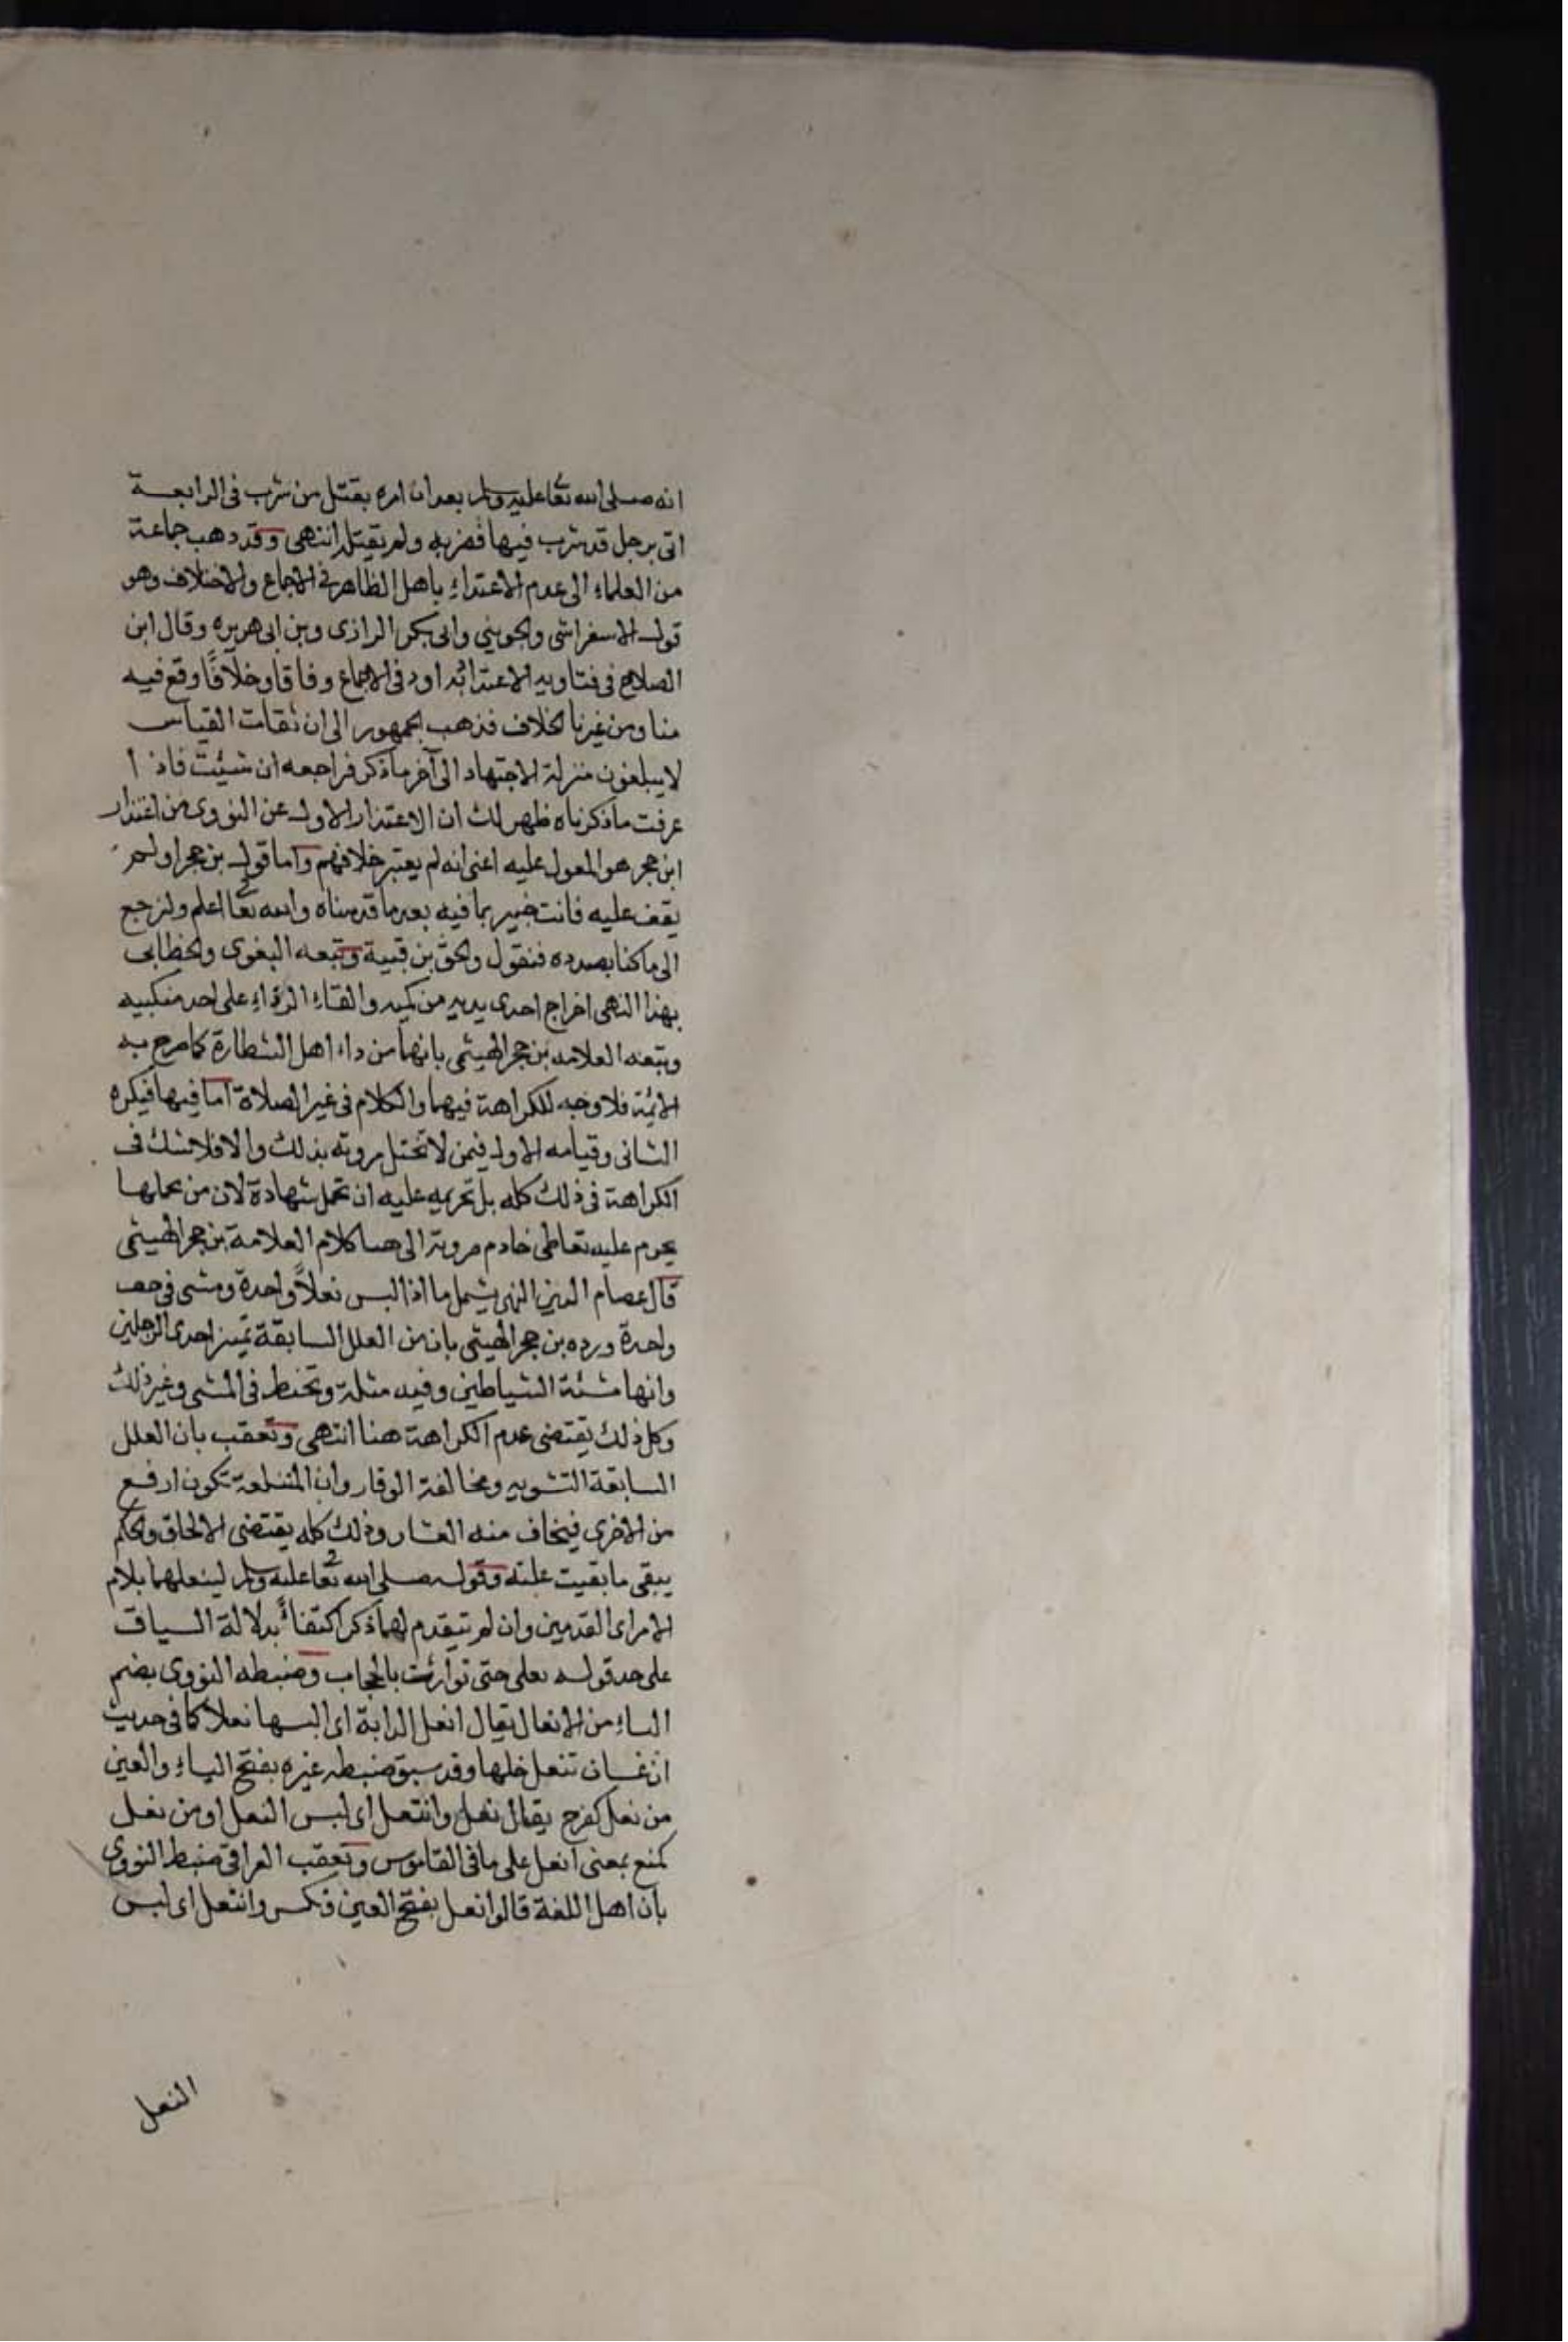 انه صلى الله تعا عليه وسلم بعد ان امره بقتل من شرب فى الرابعة
اتى برجل قد شرب فيها فضربه ولم يقتله انتهى وقد دهب جماعة
من العلماء الى عدم الاعتداء باهل الظاهر فى الاجماع والاختلاف وهو
قول الاسفراشى والجوينى وابى بكر الرازى وبن ابى هريره وقال ابن
الصلاح فى فتاويه الاعتداد اود فى الاجماع وفاقا وخلافًا وقع فيه
منا ومن غيرنا الخلاف فذهب الجمهور الى ان نقات القياس
لا يبلغون منزلة الاجتهاد الى آخر ما ذكر فراجعه ان شئت فاذا
عرفت ما ذكرناه ظهر لك ان الاعتذار الاول عن النووى من اعتذار
ابن حجر هو المعول عليه اعنى انه لم يعتبر خلافهم واما قول بن حجر او لم
يقف عليه فانت خبير بما فيه بعد ما قدمناه والله تعا اعلم ولنرجع
الى ما كنا بصدده فنقول والحق بن قتيبة وتبعه البغوى والخطابى
بهذا النهى اخراج احدى يديه من كميه والقاء الرداء على احد منكبيه
وتبعه العلامه بن حجر الهيتمى بانهما من داء اهل الشطارة كما صرح به
الائمة فلا وجه للكراهة فيهما والكلام فى غير الصلاة اما فيها فيكره
الثانى وقيامه الاول فيمن لا تختل مروته بذلك والا فلا شك فى
الكراهة فى ذلك كله بل تحريمه عليه ان تحمل شهادة لان من تحملها
يحرم عليه تعاطى خادم مروته الى هنا كلام العلامة بن حجر الهيتمى
قال عصام الدين النهى يشمل ما اذا لبس نعلاً واحدة ومشى فى خف
واحدة ورده بن حجر الهيتمى بان من العلل السابقة تميز احدى الرجلين
وانها مشئة الشياطين وفيه مثلة وتخبط فى المشى وغير ذلك
وكل ذلك يقتضى عدم الكراهة هنا انتهى وتعقب بان العلل
السابقة التشويه ومخالفة الوقار وان المنتعلة تكون ارفع
من الاخرى فيخاف منه العثار وذلك كله يقتضى الالحاق والحكم
يبقى ما بقيت علته وقوله صلى الله تعا عليه وسلم لينعلهما بلام
الامر اى القدمين وان لم يتقدم لهما ذكر اكتفاءً بدلالة السياق
على حد قوله تعلى حتى توارت بالحجاب وضبطه النووى بضم
الياء من الانعال يقال انعل الدابة اى البسها نعلا كما فى حديث
ان غسان تنعل خلها وقد سبق ضبطه غيره بفتح الياء والعين
من نعل كفرح يقال نعل وانتعل اى لبس النعل او من نعل
كمنع بمعنى انعل على ما فى القاموس وتعقب العراقى ضبط النووى
بان اهل اللغة قالوا نعل بفتح العين وتكسر وانتعل اى لبس
النعل